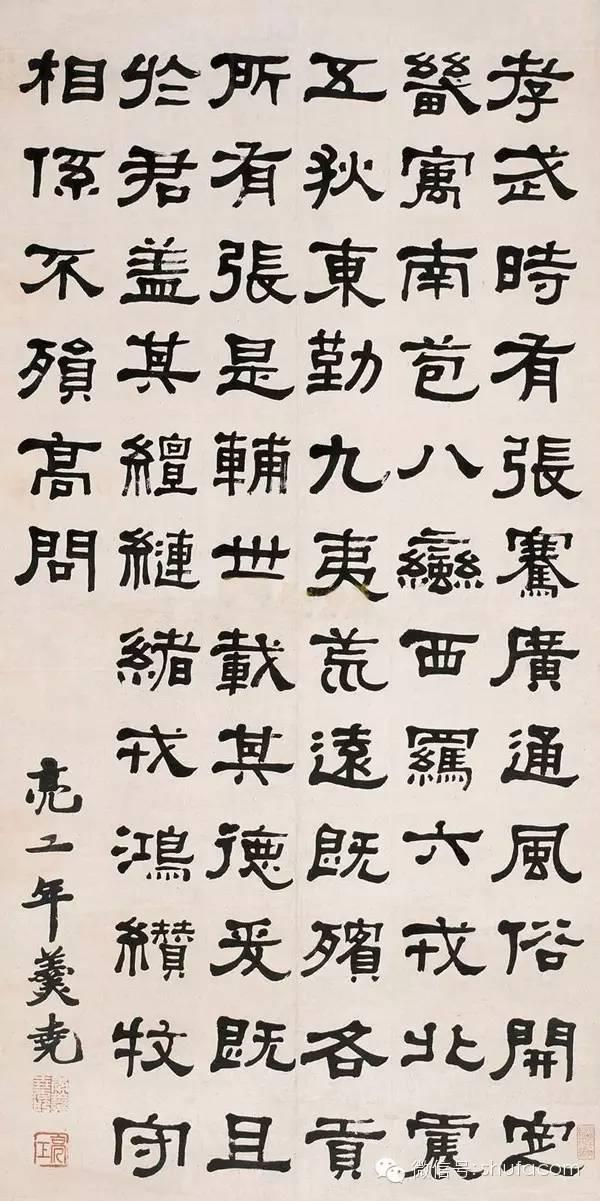 孝武時有張騫廣通風俗開定
畿寓南苞八蠻西羈六戎北震
五狄東勤九夷荒遠既殯各貢
所有張是輔世載其德爰既且
於君盖其繵縺緒戎鴻纘牧守
相係不殞高問
亮工年羹堯
微信号:shufacom